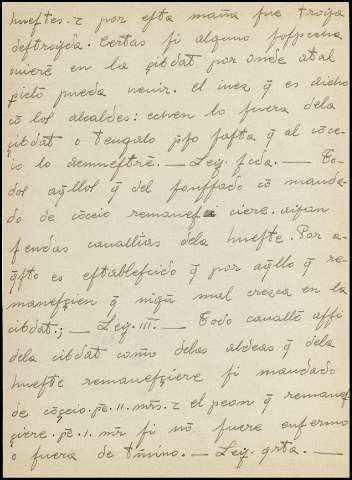 huestes. z por esta mañā fue troya
destroyda. Certas si alguno sospecha
ouierē en la çibdat por onde atal
pleito pueda uenir. el iuez q̄ es dicho
cō los alcaldes: echen lo fuera dela
çibdat o tengalo p̄so fasta q̄ al cōce-
io lo demuestrē. — Ley. scda. — To-
dos aq̄llos q̄ del fonssado cō manda-
do de cōceio remanesciere. ayan
sendas cauallias dela hueste. Por a-
q̄sto es establescido q̄ por aq̄llo q̄ re-
manesçien q̄ nīgū mal cresca en la
cibdat.; — Ley. III. — Todo cauallō assi
dela cibdat como delas aldeas q̄ dela
hueste remanesçiere si mandado
de cōçeio. pē. II. mr̄s. z el peon q̄ remanes-
çiere. pē. I. mr̄ si nō fuere enfermo
o fuera de t̄mino. — Ley. qrta. —